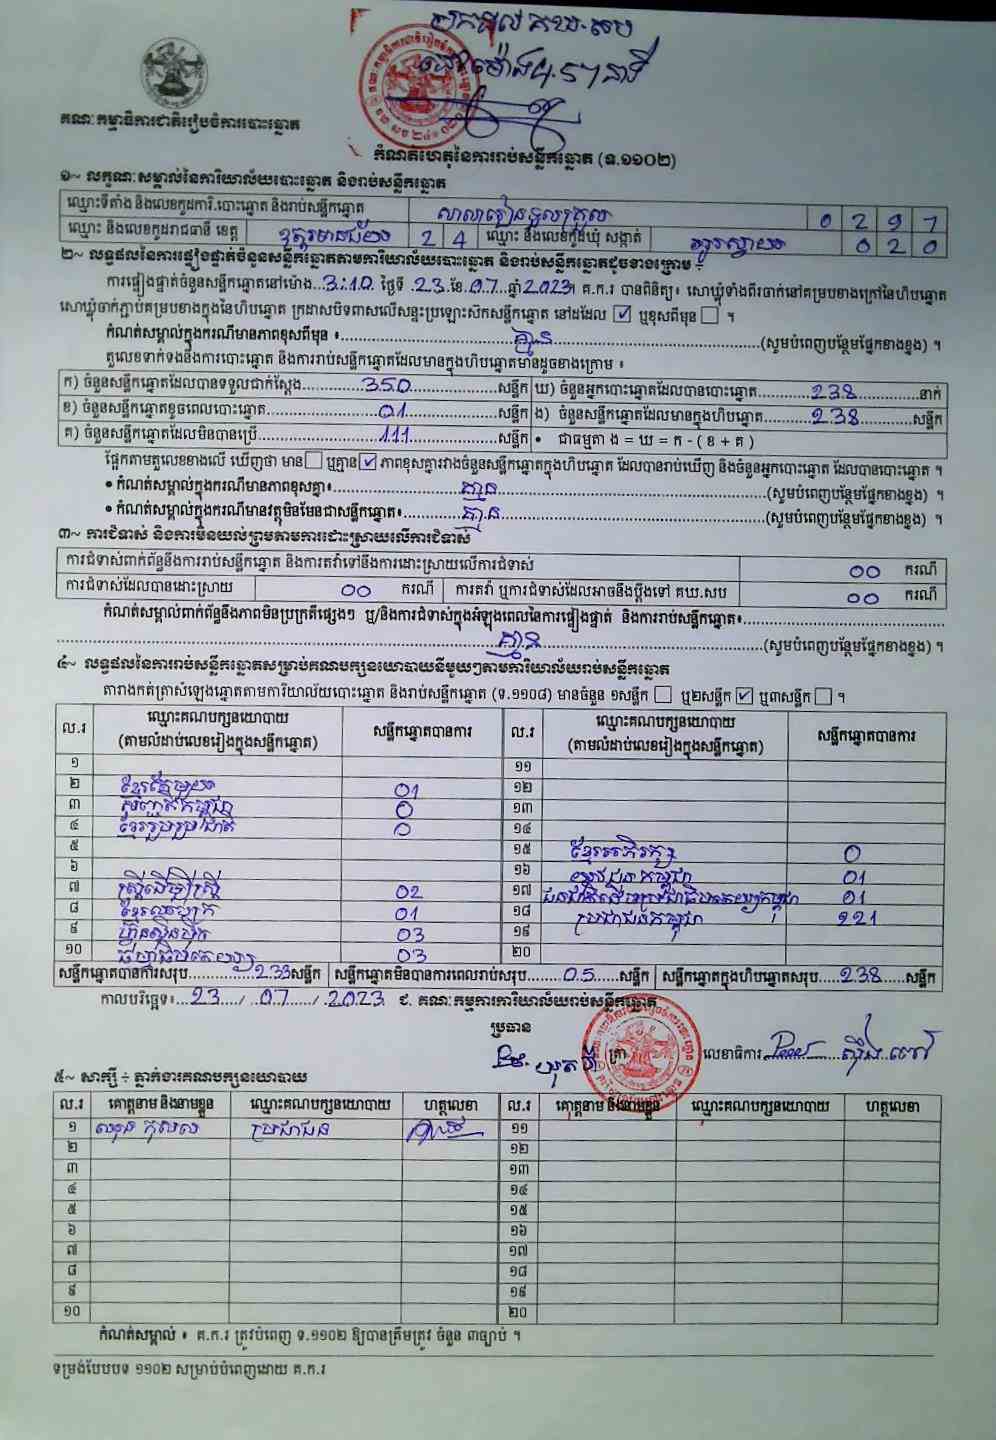 បានទទួល គឃ-សប
នៅម៉ោង 4.57 នាទី
គណៈកម្មាធិការជាតិរៀបចំការបោះឆ្នោត
កំណត់ហេតុនៃការរាប់សន្លឹកឆ្នោត (ទ.១១០២)
១~ លក្ខណៈសម្គាល់នៃការិយាល័យបោះឆ្នោត និងរាប់សន្លឹកឆ្នោត
ឈ្មោះទីតាំង និងលេខកូដការិ.បោះឆ្នោត និងរាប់សន្លឹកឆ្នោត សាលារៀនទួលក្រួល 0 2 9 7
ឈ្មោះ និងលេខកូដរាជធានី ខេត្ត ឧត្តរមានជ័យ 2 4 ឈ្មោះ និងលេខកូដឃុំ សង្កាត់ អូរស្វាយ 0 2 0
២~ លទ្ធផលនៃការផ្ទៀងផ្ទាត់ចំនួនសន្លឹកឆ្នោតតាមការិយាល័យបោះឆ្នោត និងរាប់សន្លឹកឆ្នោតដូចខាងក្រោម ÷
ការផ្ទៀងផ្ទាត់ចំនួនសន្លឹកឆ្នោតនៅម៉ោង...3:10. ថ្ងៃទី .23.ខែ.07..ឆ្នាំ2023។ គ.ក.រ បានពិនិត្យ៖ សោឃ្លុំទាំងពីរចាក់នៅគម្របខាងក្រៅនៃហិបឆ្នោត
សោឃ្លុំចាក់ភ្ជាប់គម្របខាងក្នុងនៃហិបឆ្នោត ក្រដាសបិទពាសលើសន្ទះប្រឡោះស៊កសន្លឹកឆ្នោត នៅដដែល ☑ ឬខុសពីមុន ☐ ។
កំណត់សម្គាល់ក្នុងករណីមានភាពខុសពីមុន ៖ គ្មាន (សូមបំពេញបន្ថែមផ្នែកខាងខ្នង) ។
តួលេខទាក់ទងនឹងការបោះឆ្នោត និងការរាប់សន្លឹកឆ្នោតដែលមានក្នុងហិបឆ្នោតមានដូចខាងក្រោម ៖
ក) ចំនួនសន្លឹកឆ្នោតដែលបានទទួលជាក់ស្តែង 350 សន្លឹក ឃ) ចំនួនអ្នកបោះឆ្នោតដែលបានបោះឆ្នោត 238 នាក់
ខ) ចំនួនសន្លឹកឆ្នោតខូចពេលបោះឆ្នោត 01 សន្លឹក ង) ចំនួនសន្លឹកឆ្នោតដែលមានក្នុងហិបឆ្នោត 238 សន្លឹក
គ) ចំនួនសន្លឹកឆ្នោតដែលមិនបានប្រើ 111 សន្លឹក • ជាធម្មតា ង = ឃ = ក - ( ខ + គ )
ផ្អែកតាមតួលេខខាងលើ ឃើញថា មាន☐ ឬគ្មាន☑ ភាពខុសគ្នារវាងចំនួនសន្លឹកឆ្នោតក្នុងហិបឆ្នោត ដែលបានរាប់ឃើញ និងចំនួនអ្នកបោះឆ្នោត ដែលបានបោះឆ្នោត ។
• កំណត់សម្គាល់ក្នុងករណីមានភាពខុសគ្នា៖ គ្មាន (សូមបំពេញបន្ថែមផ្នែកខាងខ្នង) ។
• កំណត់សម្គាល់ក្នុងករណីមានវត្ថុមិនមែនជាសន្លឹកឆ្នោត៖ គ្មាន (សូមបំពេញបន្ថែមផ្នែកខាងខ្នង) ។
៣~ ការជំទាស់ និងការមិនយល់ព្រមតាមការដោះស្រាយលើការជំទាស់
ការជំទាស់ពាក់ព័ន្ធនឹងការរាប់សន្លឹកឆ្នោត និងការតវ៉ាទៅនឹងការដោះស្រាយលើការជំទាស់ 00 ករណី
ការជំទាស់ដែលបានដោះស្រាយ 00 ករណី ការតវ៉ា ឬការជំទាស់ដែលអាចនឹងប្តឹងទៅ គឃ.សប 00 ករណី
កំណត់សម្គាល់ពាក់ព័ន្ធនឹងភាពមិនប្រក្រតីផ្សេងៗ ឬ/និងការជំទាស់ក្នុងអំឡុងពេលនៃការផ្ទៀងផ្ទាត់ និងការរាប់សន្លឹកឆ្នោត៖
គ្មាន (សូមបំពេញបន្ថែមផ្នែកខាងខ្នង) ។
៤~ លទ្ធផលនៃការរាប់សន្លឹកឆ្នោតសម្រាប់គណបក្សនយោបាយនីមួយៗតាមការិយាល័យរាប់សន្លឹកឆ្នោត
តារាងកត់ត្រាសំឡេងឆ្នោតតាមការិយាល័យបោះឆ្នោត និងរាប់សន្លឹកឆ្នោត (ទ.១១០៨) មានចំនួន ១សន្លឹក ☐ ឬ២សន្លឹក ☑ ឬ៣សន្លឹក ☐ ។
ល.រ ឈ្មោះគណបក្សនយោបាយ (តាមលំដាប់លេខរៀងក្នុងសន្លឹកឆ្នោត) សន្លឹកឆ្នោតបានការ ល.រ ឈ្មោះគណបក្សនយោបាយ (តាមលំដាប់លេខរៀងក្នុងសន្លឹកឆ្នោត) សន្លឹកឆ្នោតបានការ
១ ១១
២ ខ្មែរតែមួយ 01 ១២
៣ សញ្ជាតិកម្ពុជា 0 ១៣
៤ ខ្មែររួបរួមជាតិ 0 ១៤
៥ ១៥ ខ្មែរអភិរក្ស 0
៦ ១៦ យុវជនកម្ពុជា 01
៧ ស្ត្រីដើម្បីស្ត្រី 02 ១៧ ជនជាតិដើមប្រជាធិបតេយ្យកម្ពុជា 01
៨ ខ្មែរឈប់ក្រ 01 ១៨ ប្រជាជនកម្ពុជា 221
៩ ហ៊្វុនស៊ិនប៉ិច 03 ១៩
១០ ធម្មាធិបតេយ្យ 03 ២០
សន្លឹកឆ្នោតបានការសរុប 233 សន្លឹក សន្លឹកឆ្នោតមិនបានការពេលរាប់សរុប 05 សន្លឹក សន្លឹកឆ្នោតក្នុងហិបឆ្នោតសរុប 238 សន្លឹក
កាលបរិច្ឆេទ៖ 23 / 07 / 2023 ជ. គណៈកម្មការការិយាល័យរាប់សន្លឹកឆ្នោត
ប្រធាន
(ត្រា) លេខាធិការ
៥~ សាក្សី ÷ ភ្នាក់ងារគណបក្សនយោបាយ
ល.រ គោត្តនាម និងនាមខ្លួន ឈ្មោះគណបក្សនយោបាយ ហត្ថលេខា ល.រ គោត្តនាម និងនាមខ្លួន ឈ្មោះគណបក្សនយោបាយ ហត្ថលេខា
១ ឈុន កុសល ប្រជាជន ១១
២ ១២
៣ ១៣
៤ ១៤
៥ ១៥
៦ ១៦
៧ ១៧
៨ ១៨
៩ ១៩
១០ ២០
កំណត់សម្គាល់ ៖ គ.ក.រ ត្រូវបំពេញ ទ.១១០២ ឱ្យបានត្រឹមត្រូវ ចំនួន ៣ច្បាប់ ។
ទម្រង់បែបបទ ១១០២ សម្រាប់បំពេញដោយ គ.ក.រ